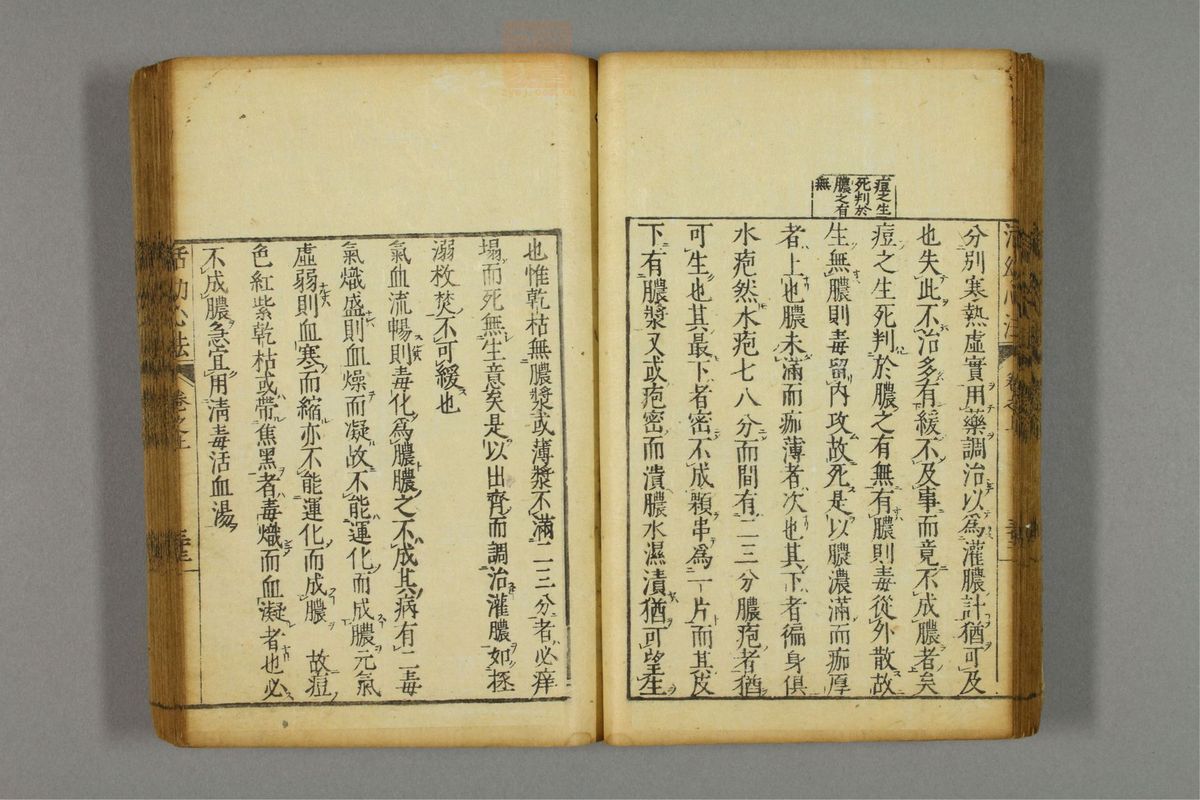 痘之生
死判於
膿之有
無
分別寒熱虛實用藥調治以爲灌膿計猶可及
也失此不治多有緩不及事而竟不成膿者矣
痘之生死判於膿之有無有膿則毒從外散故
生無膿則毒留內攻故死是以膿濃滿而痂厚
者上也膿未滿而痂薄者次也其下者徧身俱
水疱然水疱七八分而間有二三分膿疱者猶
可生也其最下者密不成顆串爲一片而其皮
下有膿漿又或疱密而潰膿水濕漬猶可望生
也惟乾枯無膿漿或薄漿不滿二三分者必痒
塌而死無生意矣是以出齊而調治灌膿如拯
溺救焚不可緩也
氣血流暢則毒化爲膿膿之不成其病有二毒
氣熾盛則血燥而凝故不能運化而成膿元氣
虛弱則血寒而縮亦不能運化而成膿 故痘
色紅紫乾枯或帶焦黑者毒熾而血凝者也必
不成膿急宜用淸毒活血湯
活幼心法 卷之